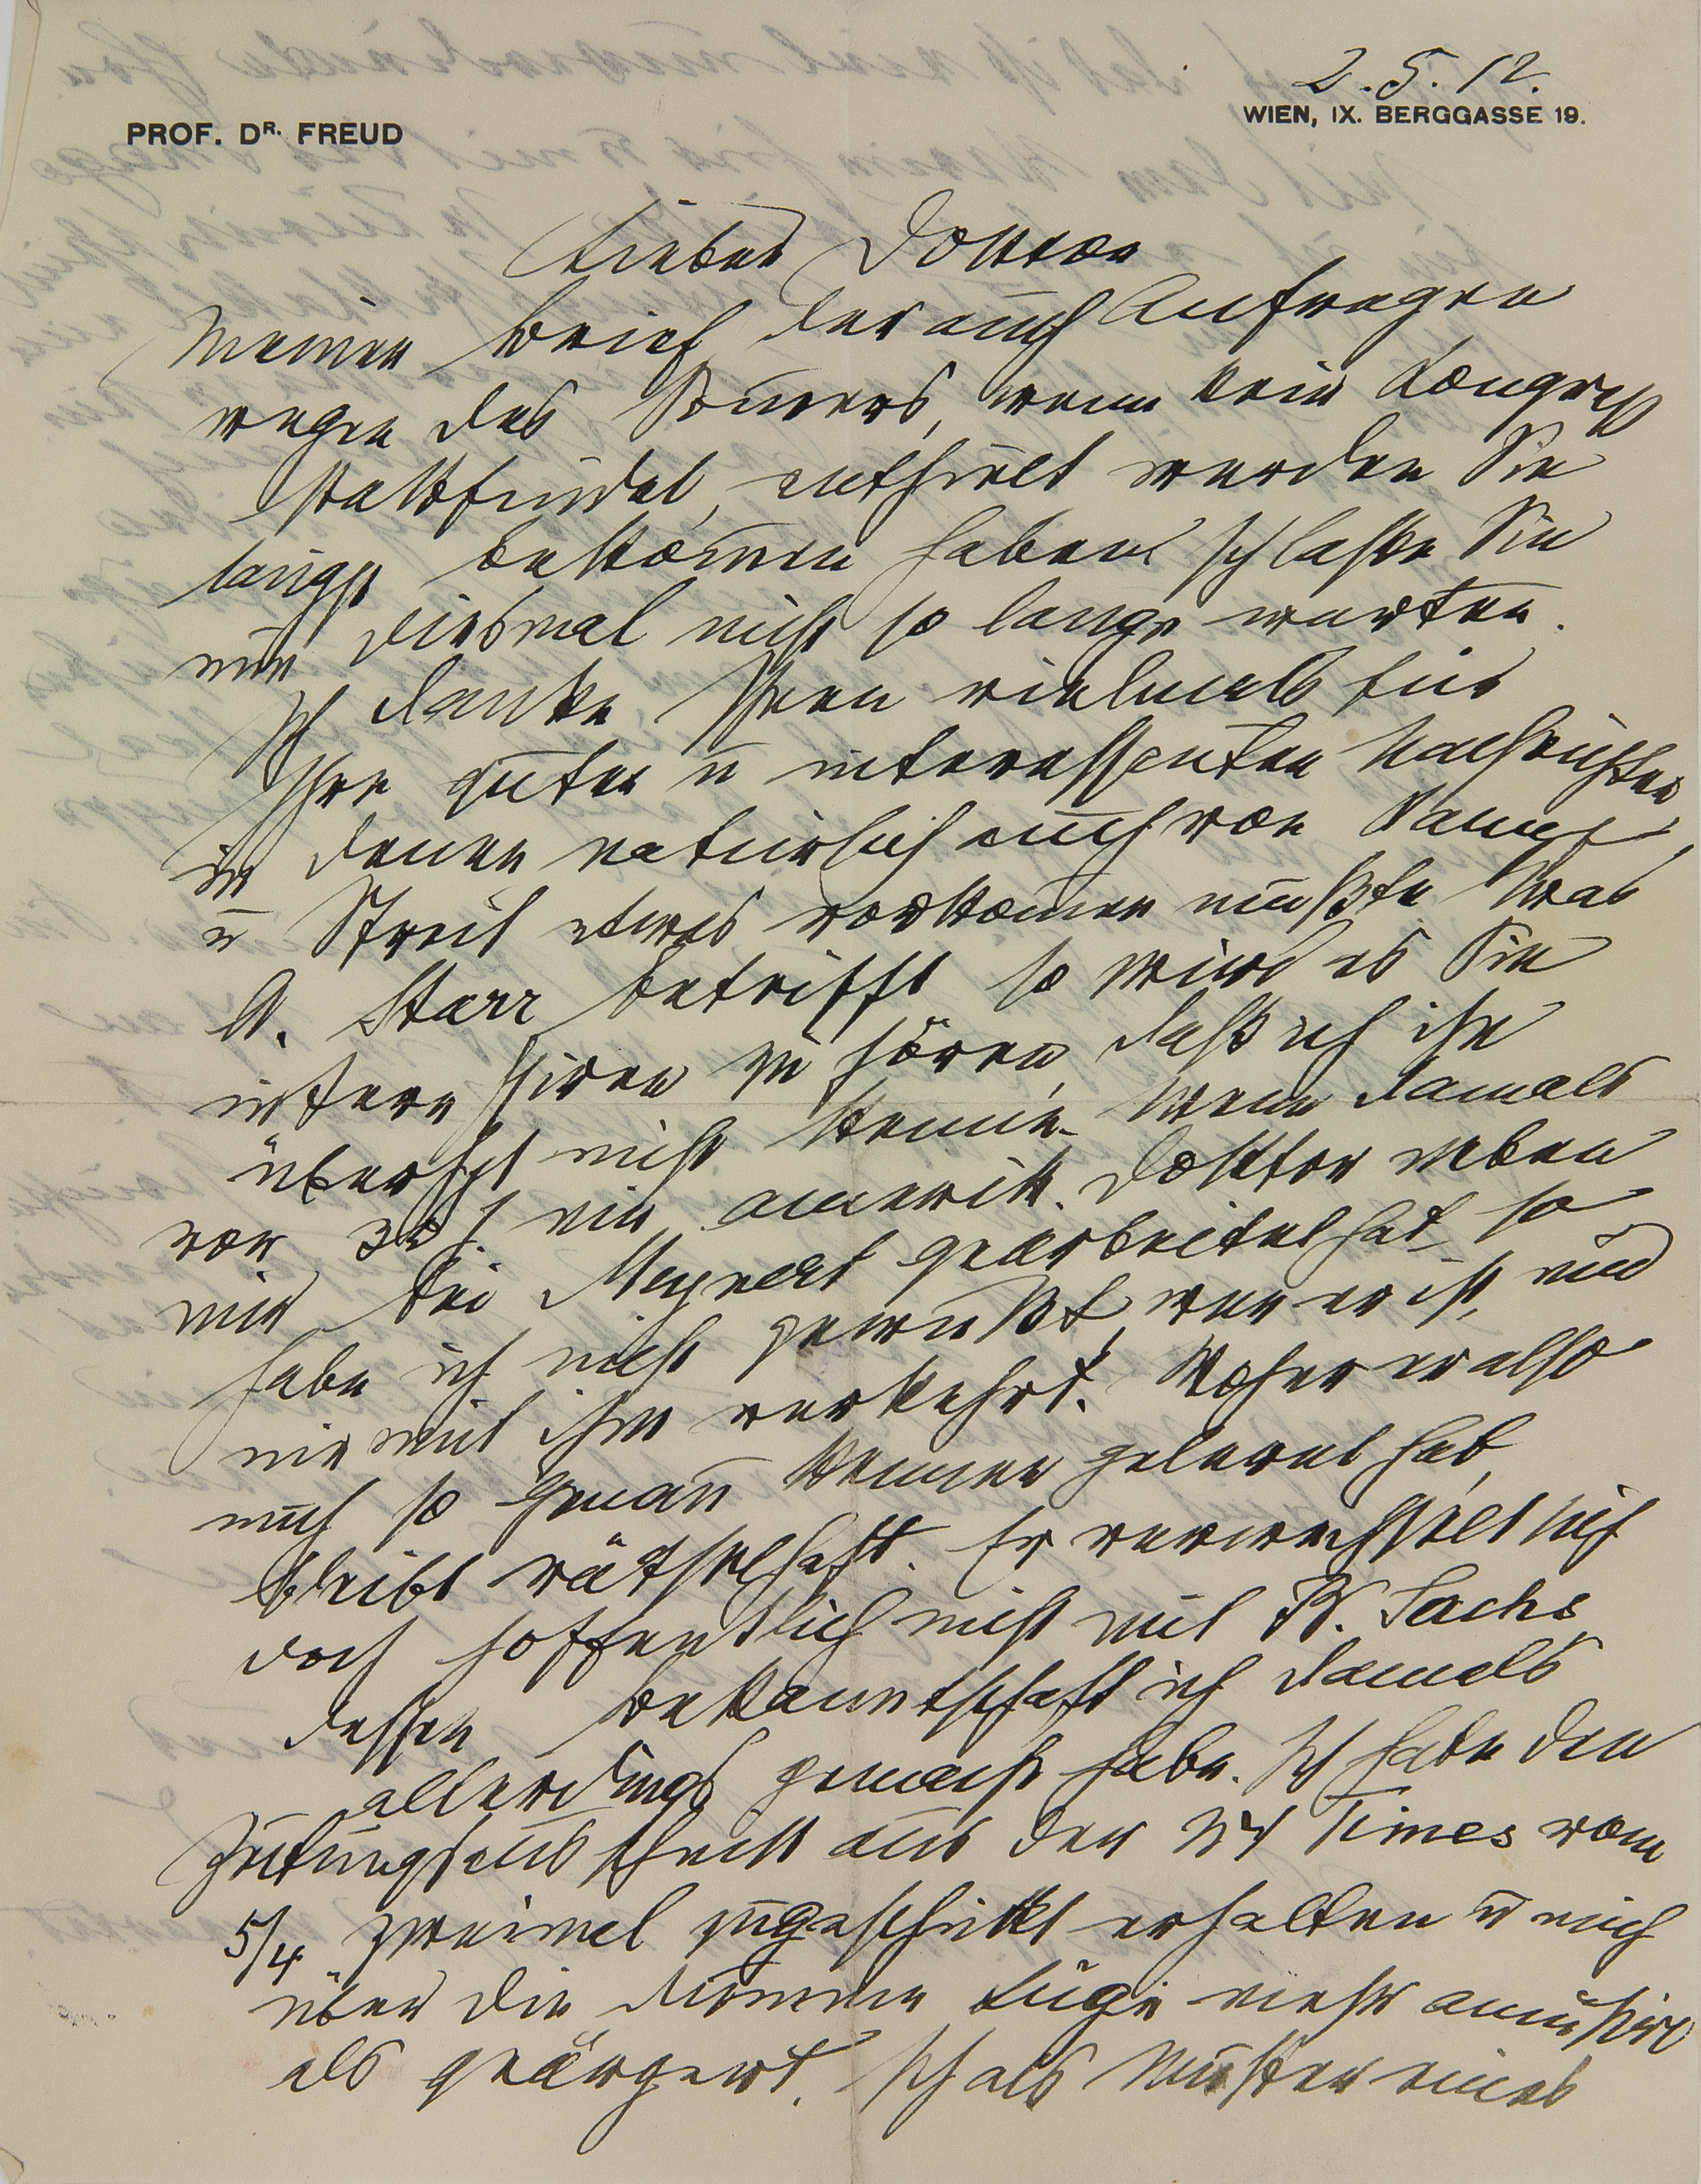 2.5.12.
PROF. DR. FREUD
WIEN, IX. BERGGASSE 19.
Lieber Doktor
Meinen Brief, der auch Anfragen
wegen des Som̄ers, wenn kein Kongreß
stattfindet, enthielt werden Sie
längst bekom̄en haben. Ich lasse Sie
nun diesmal nicht so lange warten.
Ich danke Ihnen vielmals für
Ihre guten u interessanten Nachrichten
in denen natürlich auch von Kampf
u Streit etwas vorkom̄en mußte. Was
A. Starr betrifft so wird es Sie
interessiren zu hören, daß ich ihn
überhpt nicht kenne. Wenn damals
vor J. ein amerik. Doktor neben
mir bei Meynert gearbeitet hat, so
habe ich nicht gewußt, wer er ist, und
nie mit ihm verkehrt. Woher er also
mich so genau kennen gelernt hat,
bleibt rätselhaft. Er verwechselt mich
doch hoffentlich nicht mit B. Sachs,
dessen Bekanntschaft ich damals
allerdings gemacht habe. Ich habe den
Zeitungsausschnitt aus der NY Times vom
5/4 zweimal zugeschickt erhalten u mich
über die dumme Lüge mehr amüsirt
als geärgert. Ich als Muster eines